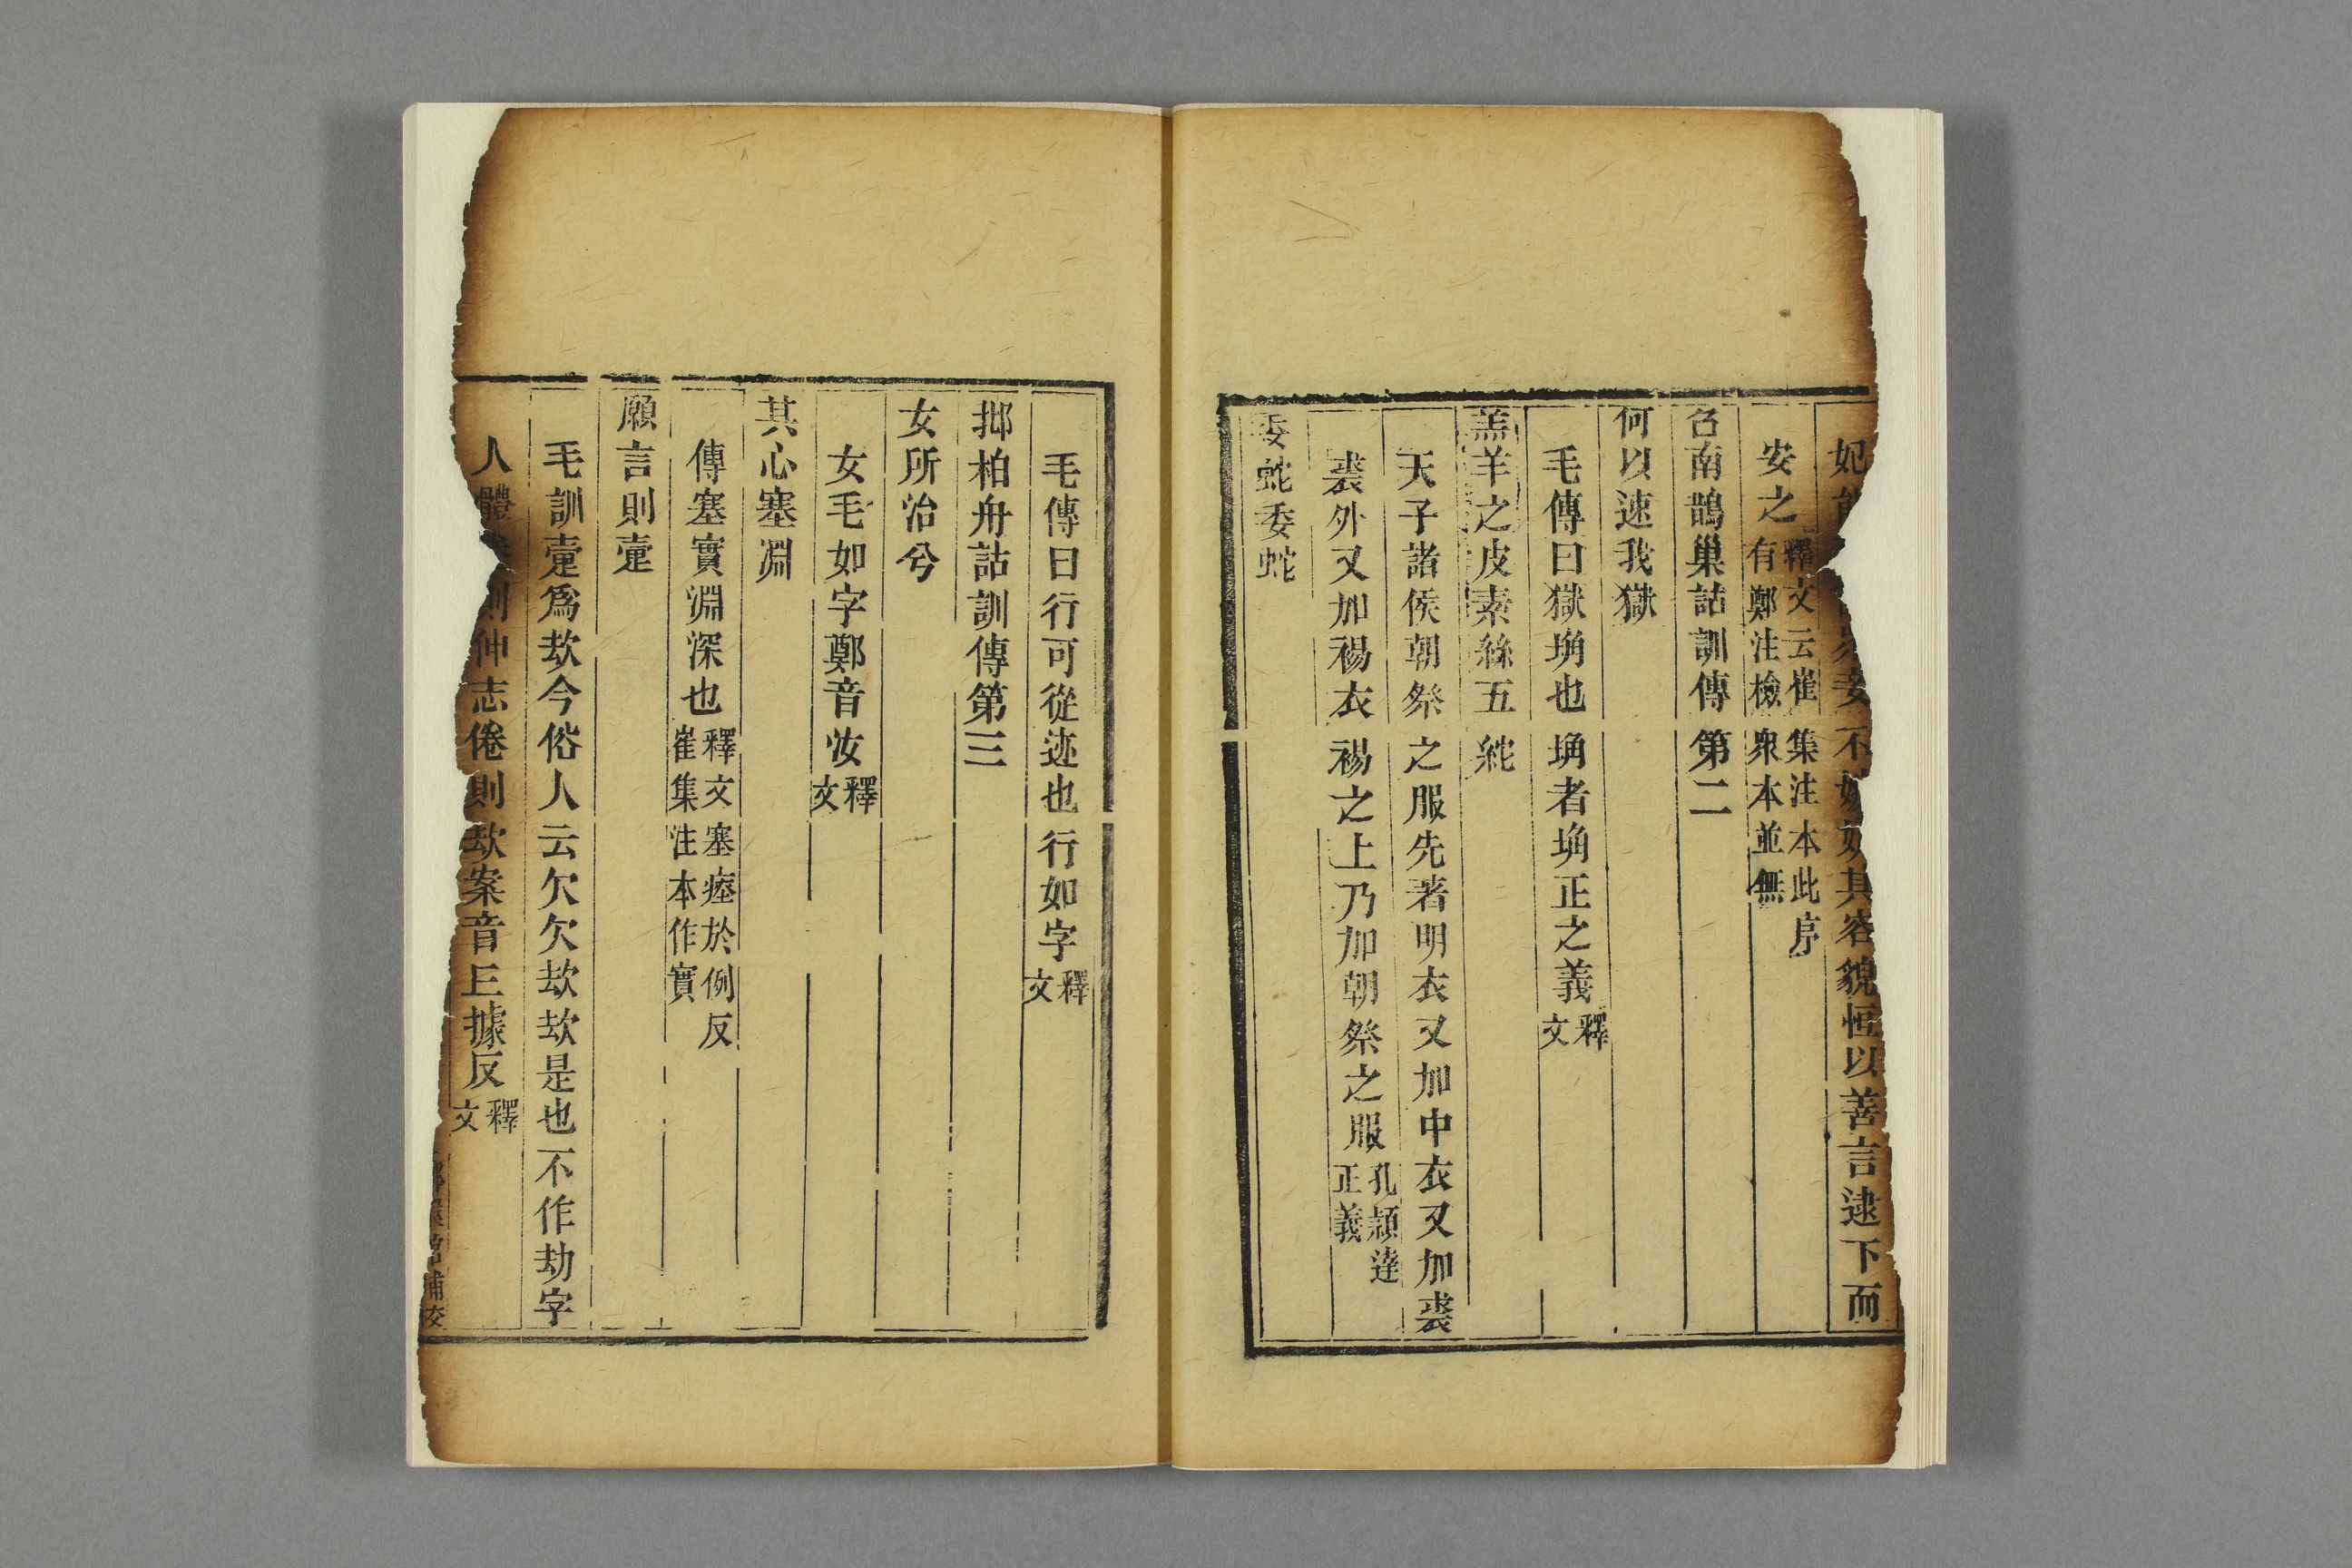 妃 妾不 其容貌恒以善言逮下而
安之釋文云崔集注本此序
有鄭注檢衆本並無
召南鵲巢詁訓傳第二
何以速我獄
毛傳曰獄埆也埆者埆正之義釋文
羔羊之皮素絲五紽
天子諸侯朝祭之服先著明衣又加中衣又加裘
裘外又加裼衣裼之上乃加朝祭之服孔穎達
正義
委蛇委蛇
毛傳曰行可從迹也行如字釋文
邶柏舟詁訓傳第三
女所治兮
女毛如字鄭音汝釋文
其心塞淵
傳塞實淵深也釋文塞瘞於例反
崔集注本作實
願言則疐
毛訓疐爲㰦今俗人云欠欠㰦㰦是也不作劫字
人體 則伸志倦則㰦案音丘據反釋文
補校